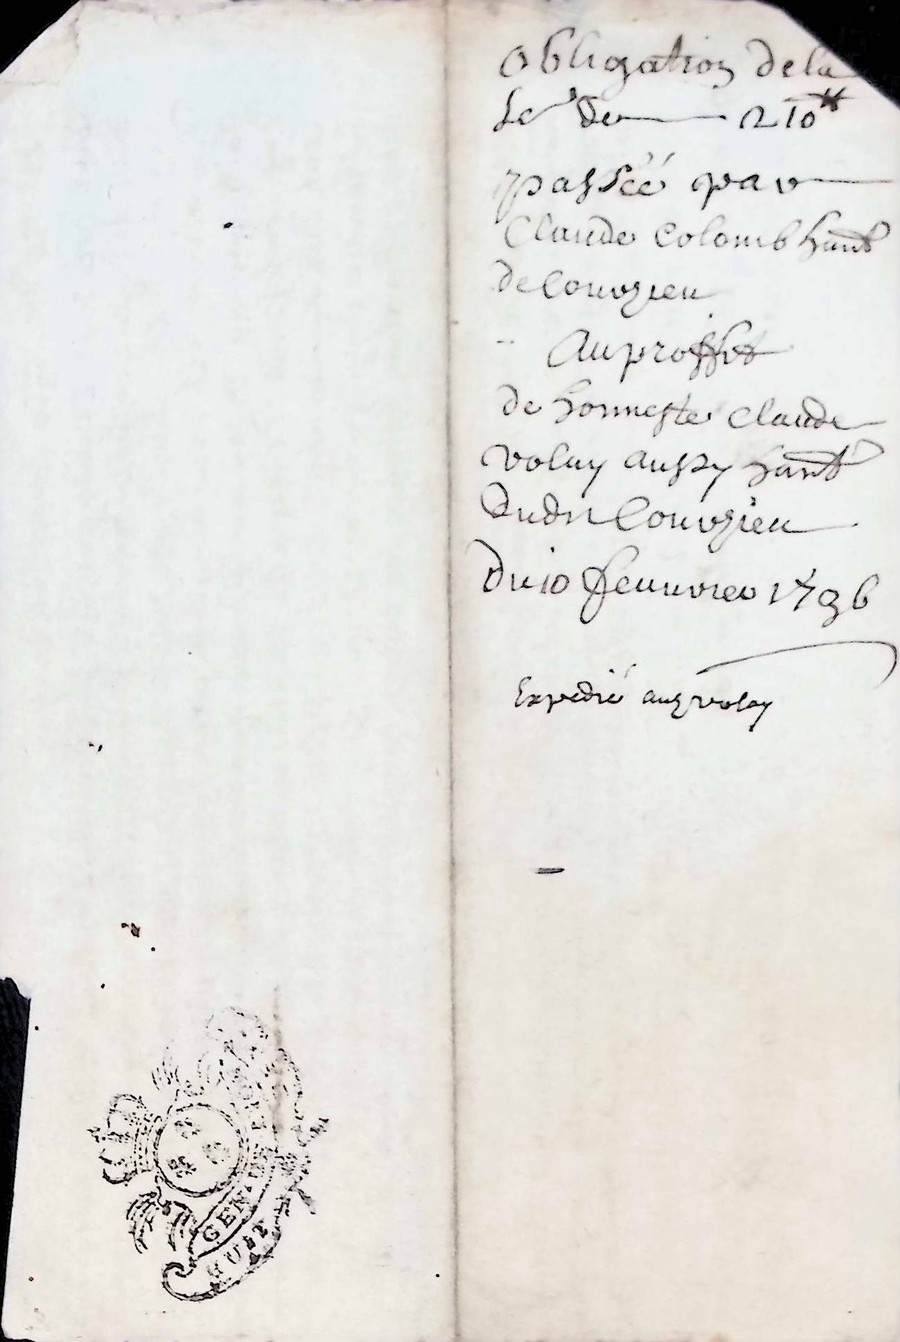 obligation de la
so.e de 210 ₶
passéé par
Claude colomb hant
de Couvzieu
Au proffit
de honneste claude
volay aussy hant
dudit Couvzieu
du 10 feuvrier 1736
Expedié aud volay
GEN. D
HUIT